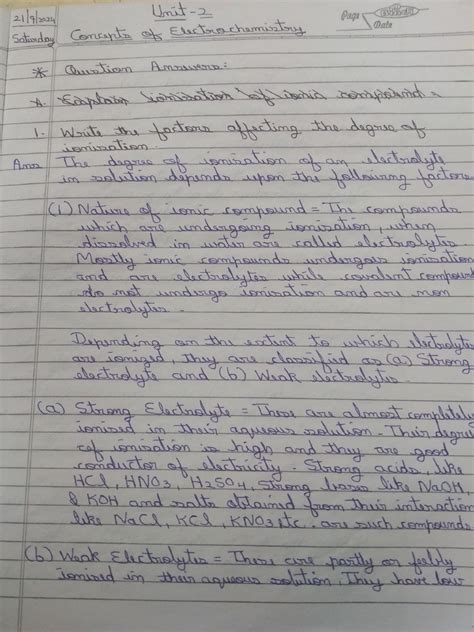 Unit-2
Page
Date
21/9/2024
Saturday
Concepts of Electrochemistry
* Question Answers:
* Explain ionisation of ionic compound =
1. Write the factors affecting the degree of
ionisation
Ans The degree of ionisation of an electrolyte
in solution depends upon the following factors
(i) Nature of ionic compound = The compounds
which are undergoing ionisation, when
dissolved in water are called electrolytes
Mostly ionic compounds undergoes ionisation
and are electrolytes while covalent compounds
do not undergo ionisation and are non
electrolytes.
Depending on the extent to which electrolytes
are ionized, they are classified as (a) Strong
electrolyte and (b) Weak electrolytes.
(a) Strong Electrolyte = These are almost completely
ionised in their aqueous solution. Their degree
of ionisation is high and they are good
conductor of electricity. Strong acids like
HCl, HNO3, H2SO4, strong bases like NaOH
& KOH and salts obtained from their interaction
like NaCl, KCl, KNO3 etc. are such compounds
(b) Weak Electrolytes = These are partly or feebly
ionised in their aqueous solution. They have low